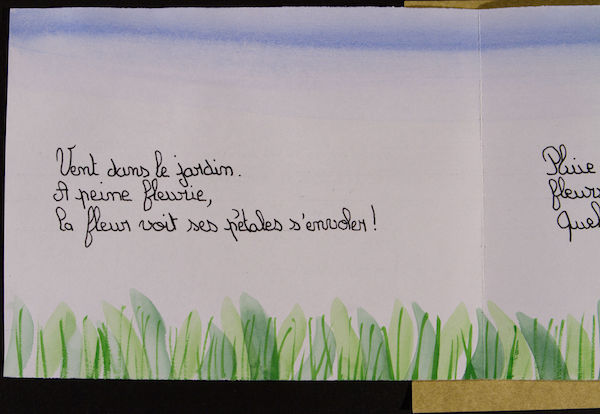 Vent dans le jardin.
A peine fleurie,
la fleur voit ses pétales s'envoler !
Pluie
fleurs
Quel